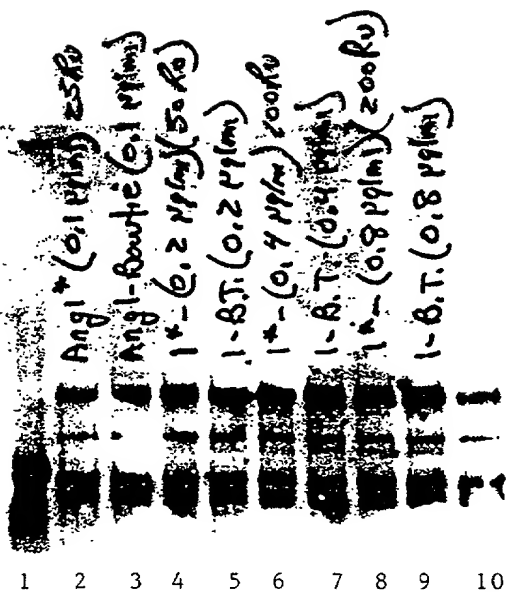 Ang1* (0.1 µg/ml) 25Ru
Ang1-Bowtie (0.1 µg/ml)
1*-(0.2 µg/ml)(50 Ru)
1-B.T. (0.2 µg/ml)
1*-(0.4 µg/ml) 200Ru
1-B.T. (0.4 µg/ml)
1*-(0.8 µg/ml)(200Ru)
1-B.T. (0.8 µg/ml)
1 2 3 4 5 6 7 8 9 10